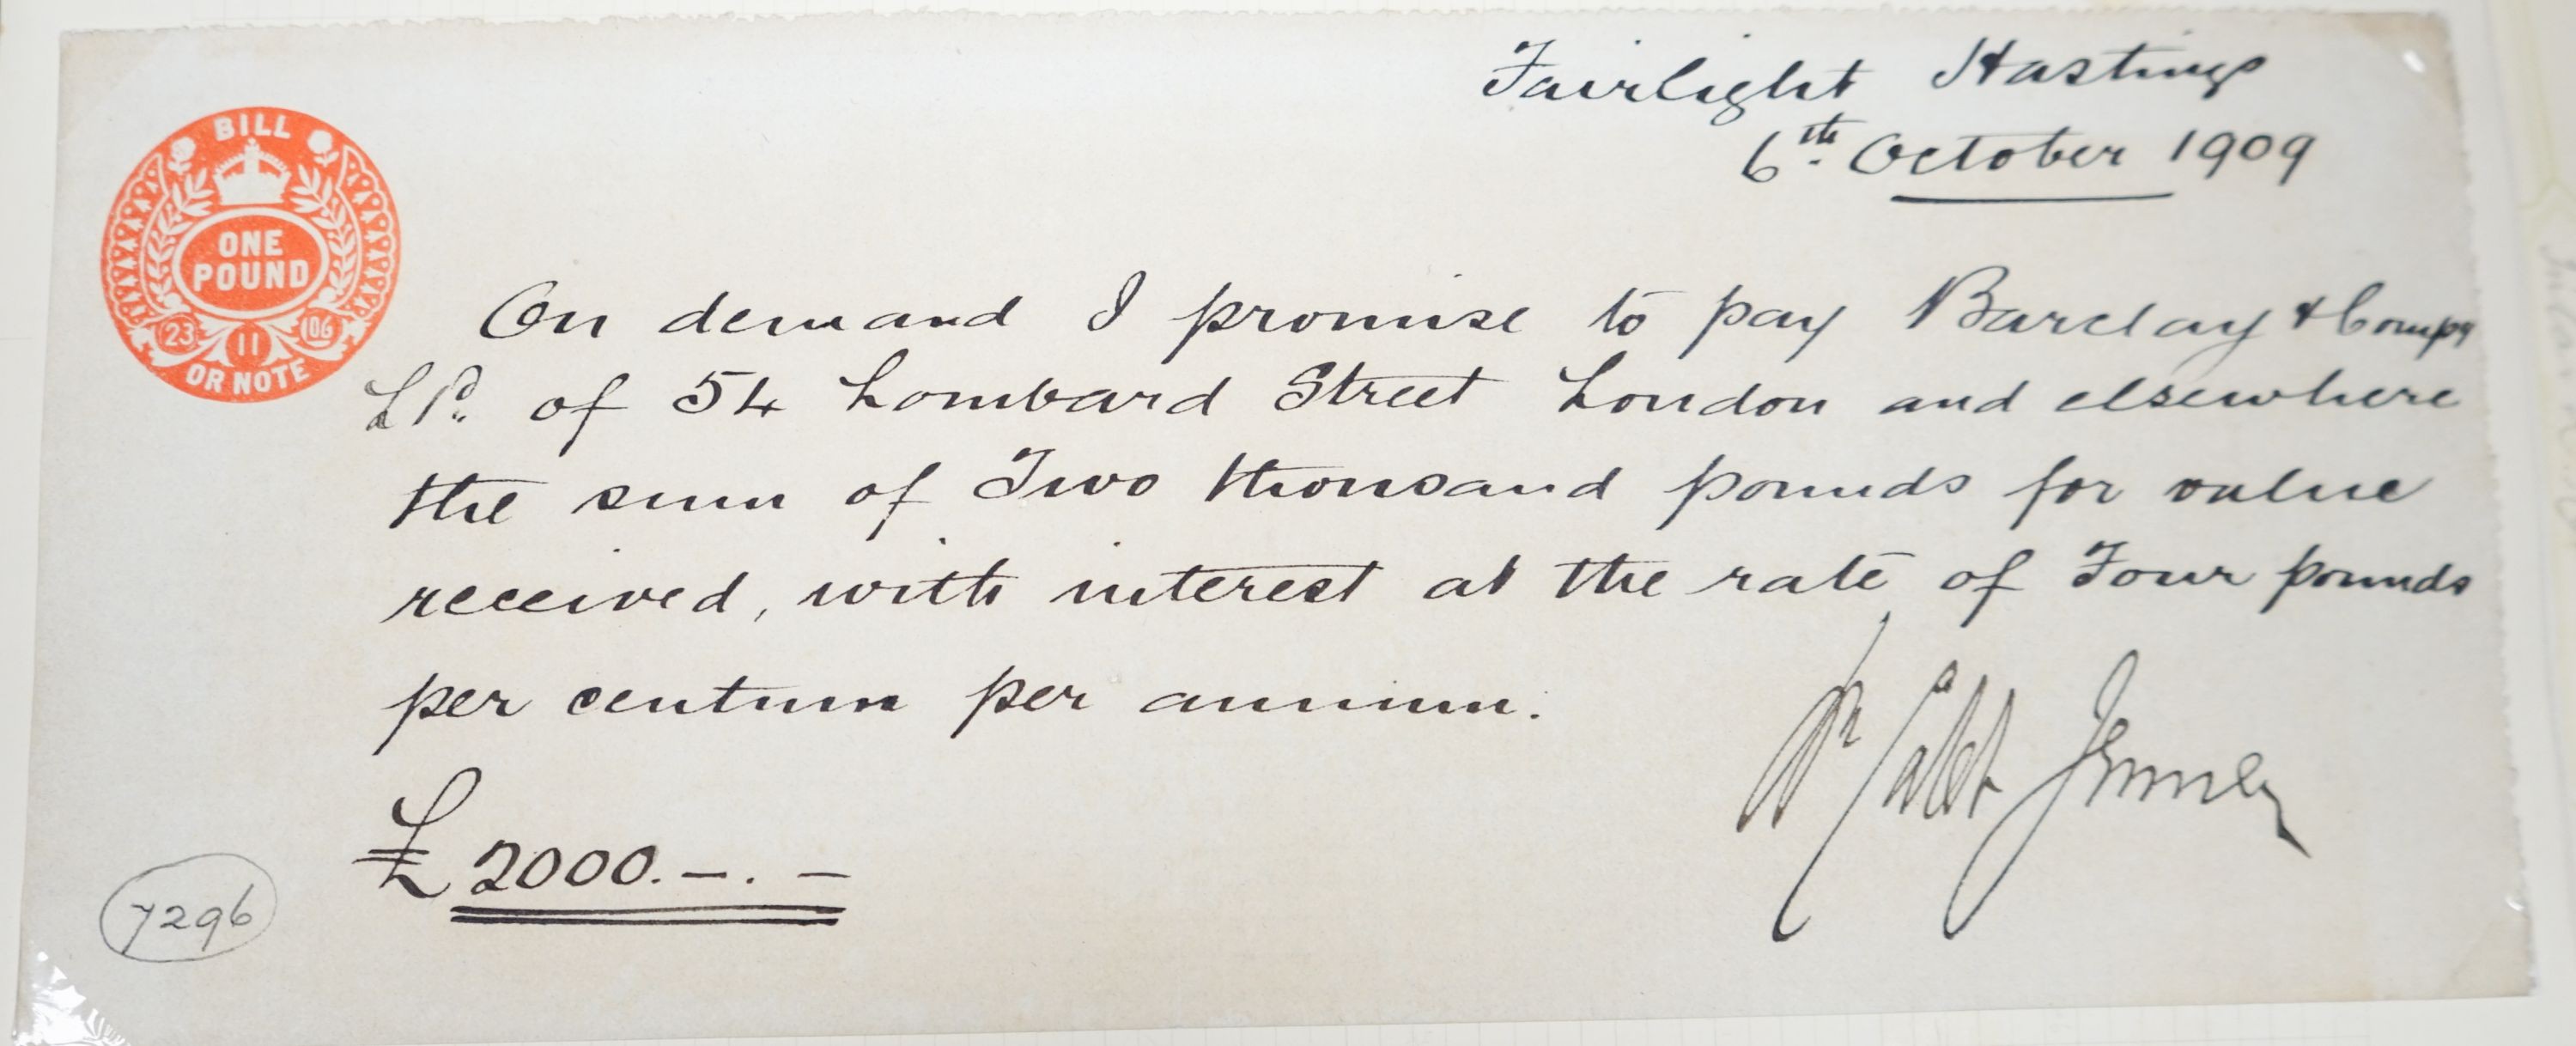 Fairlight Hastings
6th. October 1909
BILL
ONE
POUND
23 11 106
OR NOTE
On demand I promise to pay Barclay & Compy
Ld. of 54 Lombard Street London and elsewhere
the sum of Two thousand pounds for value
received, with interest at the rate of Four pounds
per centum per annum.
£2000.-.-
7296